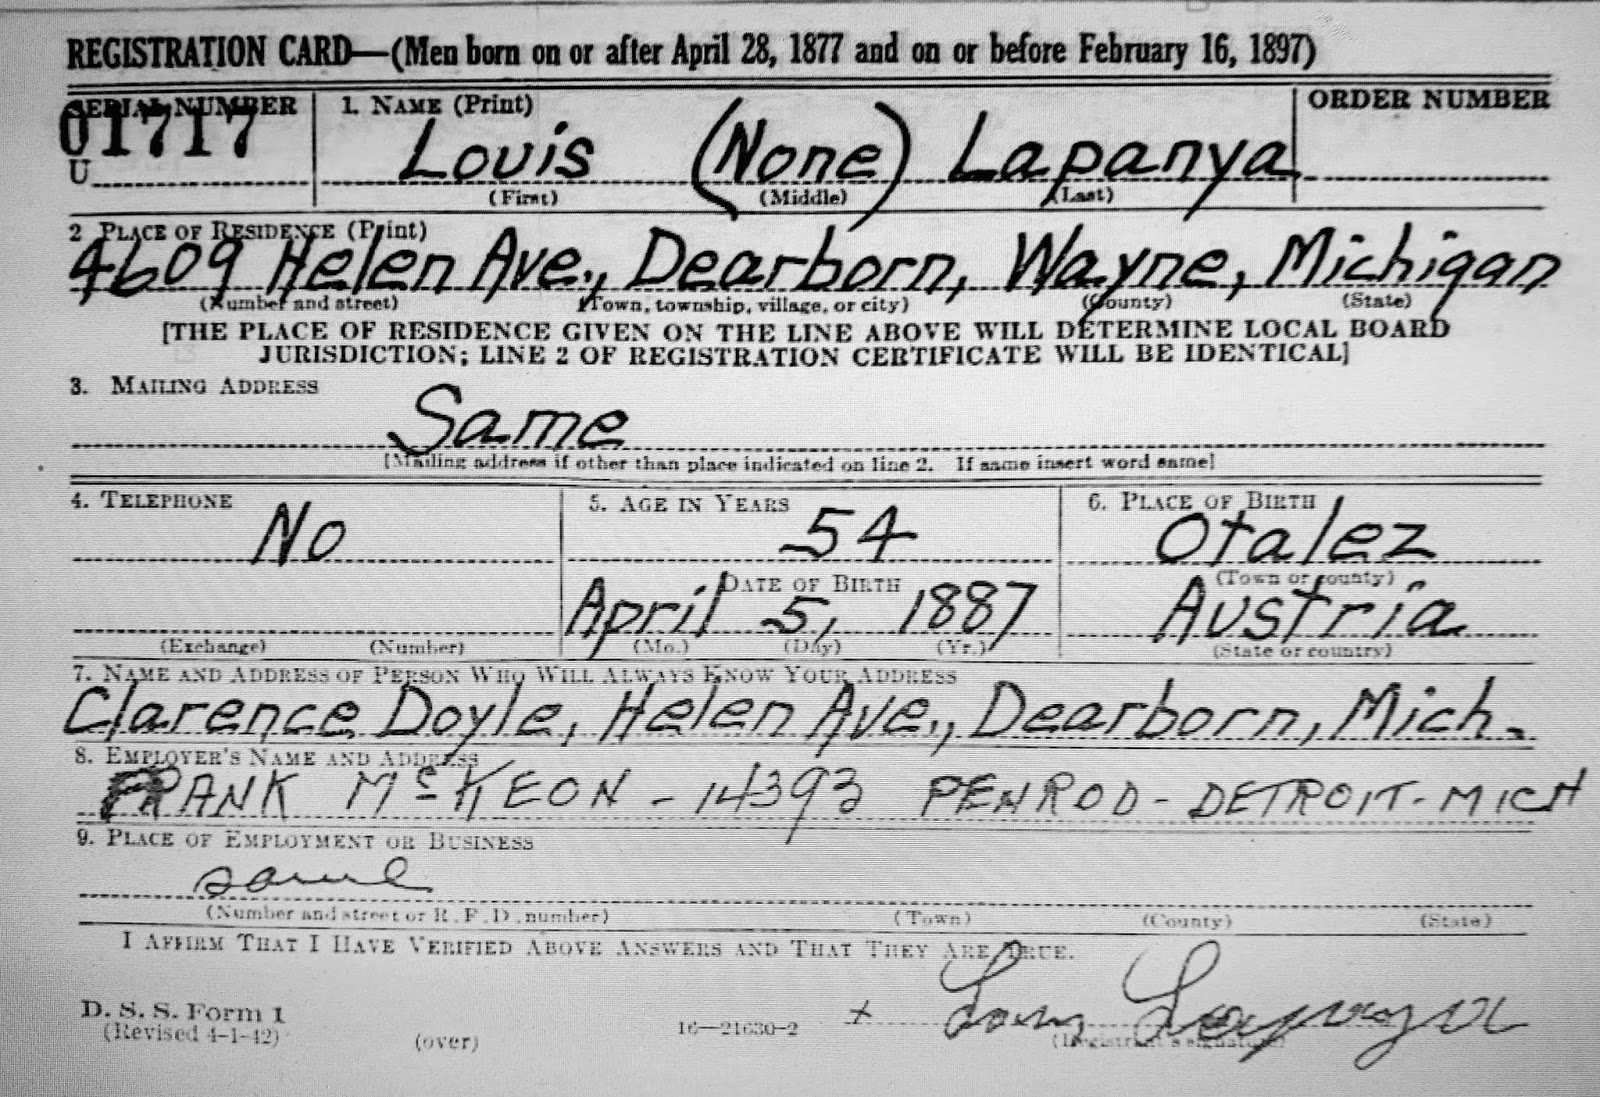 REGISTRATION CARD—(Men born on or after April 28, 1877 and on or before February 16, 1897)
SERIAL NUMBER 1. NAME (Print) ORDER NUMBER
01717 Louis (None) Lapanya
U
(First) (Middle) (Last)
2 PLACE OF RESIDENCE (Print)
4609 Helen Ave., Dearborn, Wayne, Michigan
(Number and street) (Town, township, village, or city) (County) (State)
[THE PLACE OF RESIDENCE GIVEN ON THE LINE ABOVE WILL DETERMINE LOCAL BOARD
JURISDICTION; LINE 2 OF REGISTRATION CERTIFICATE WILL BE IDENTICAL]
3. MAILING ADDRESS
Same
[Mailing address if other than place indicated on line 2. If same insert word same]
4. TELEPHONE 5. AGE IN YEARS 6. PLACE OF BIRTH
No 54 Otalez
DATE OF BIRTH (Town or county)
April 5, 1887 Austria
(Exchange) (Number) (Mo.) (Day) (Yr.) (State or country)
7. NAME AND ADDRESS OF PERSON WHO WILL ALWAYS KNOW YOUR ADDRESS
Clarence Doyle, Helen Ave., Dearborn, Mich.
8. EMPLOYER'S NAME AND ADDRESS
FRANK McKEON - 14393 PENROD - DETROIT - MICH
9. PLACE OF EMPLOYMENT OR BUSINESS
same
(Number and street or R. F. D. number) (Town) (County) (State)
I AFFIRM THAT I HAVE VERIFIED ABOVE ANSWERS AND THAT THEY ARE TRUE.
D. S. S. Form 1
(Revised 4-1-42) (over) 16—21630-2 x Louis Lapanya
(Registrant's signature)